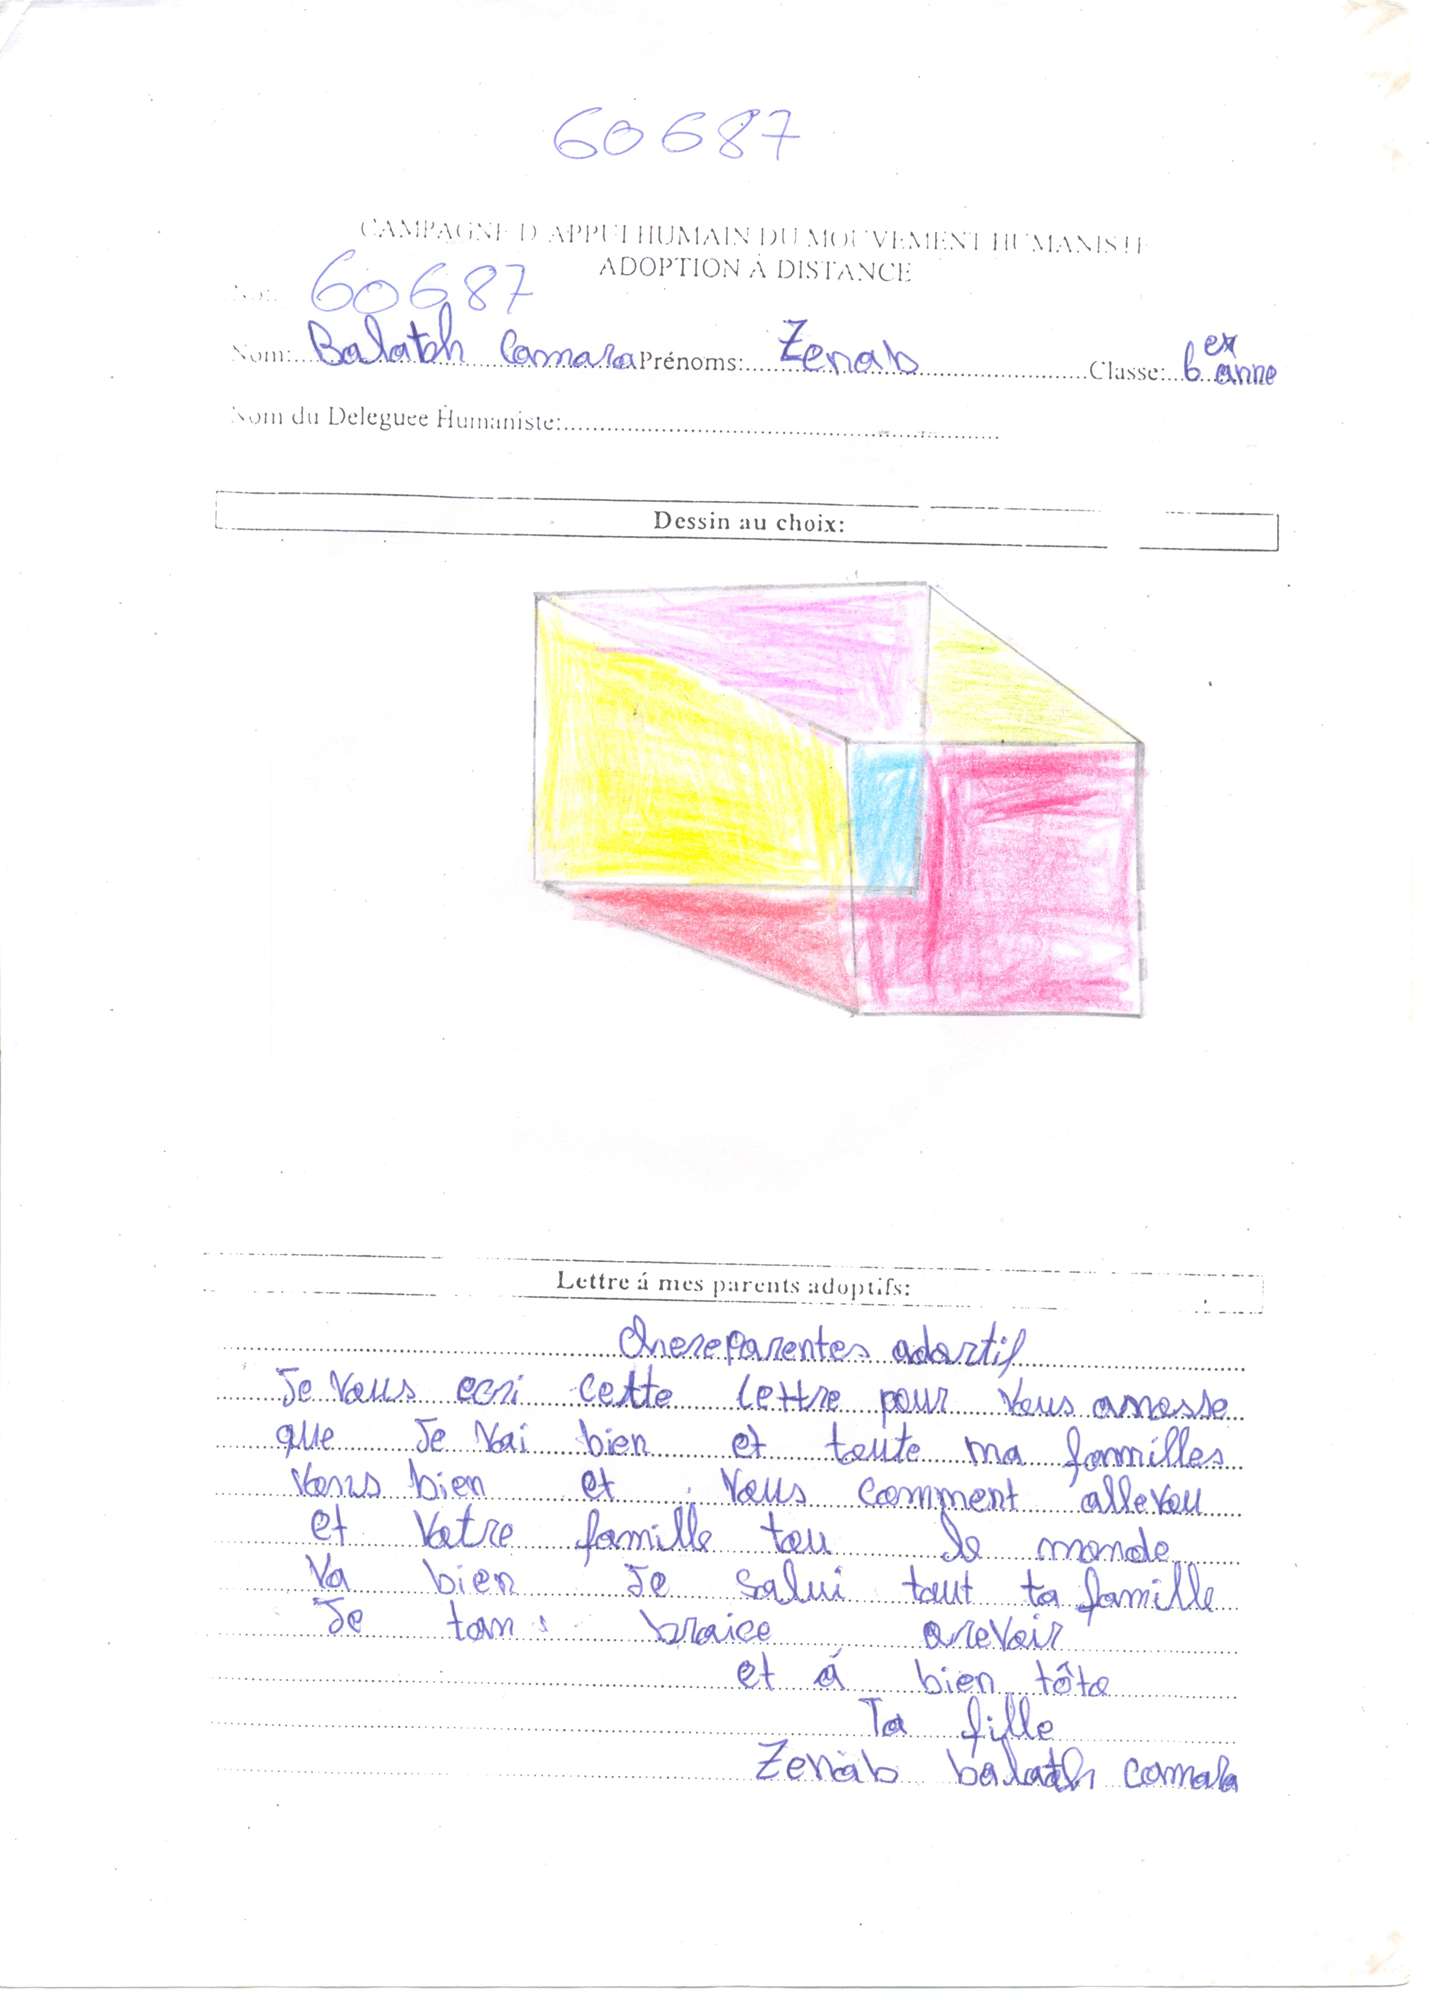 60687
CAMPAGNE D'APPUI HUMAIN DU MOUVEMENT HUMANISTE
ADOPTION Á DISTANCE
60687
Nom: Balatsh Camara Prénoms: Zenab Classe: 6 ex anne
Nom du Deleguee Humaniste:
Dessin au choix:
Lettre á mes parents adoptifs:
chereparentes adortif
Je vous ecri cette lettre pour vous anosse
que Je vai bien et toute ma familles
vons bien et vous comment allevou
et votre famille tou le monde
va bien Je salui tout ta famille
Je tan braice arevoir
et á bien tôte
Ta fille
Zenab balatsh camara